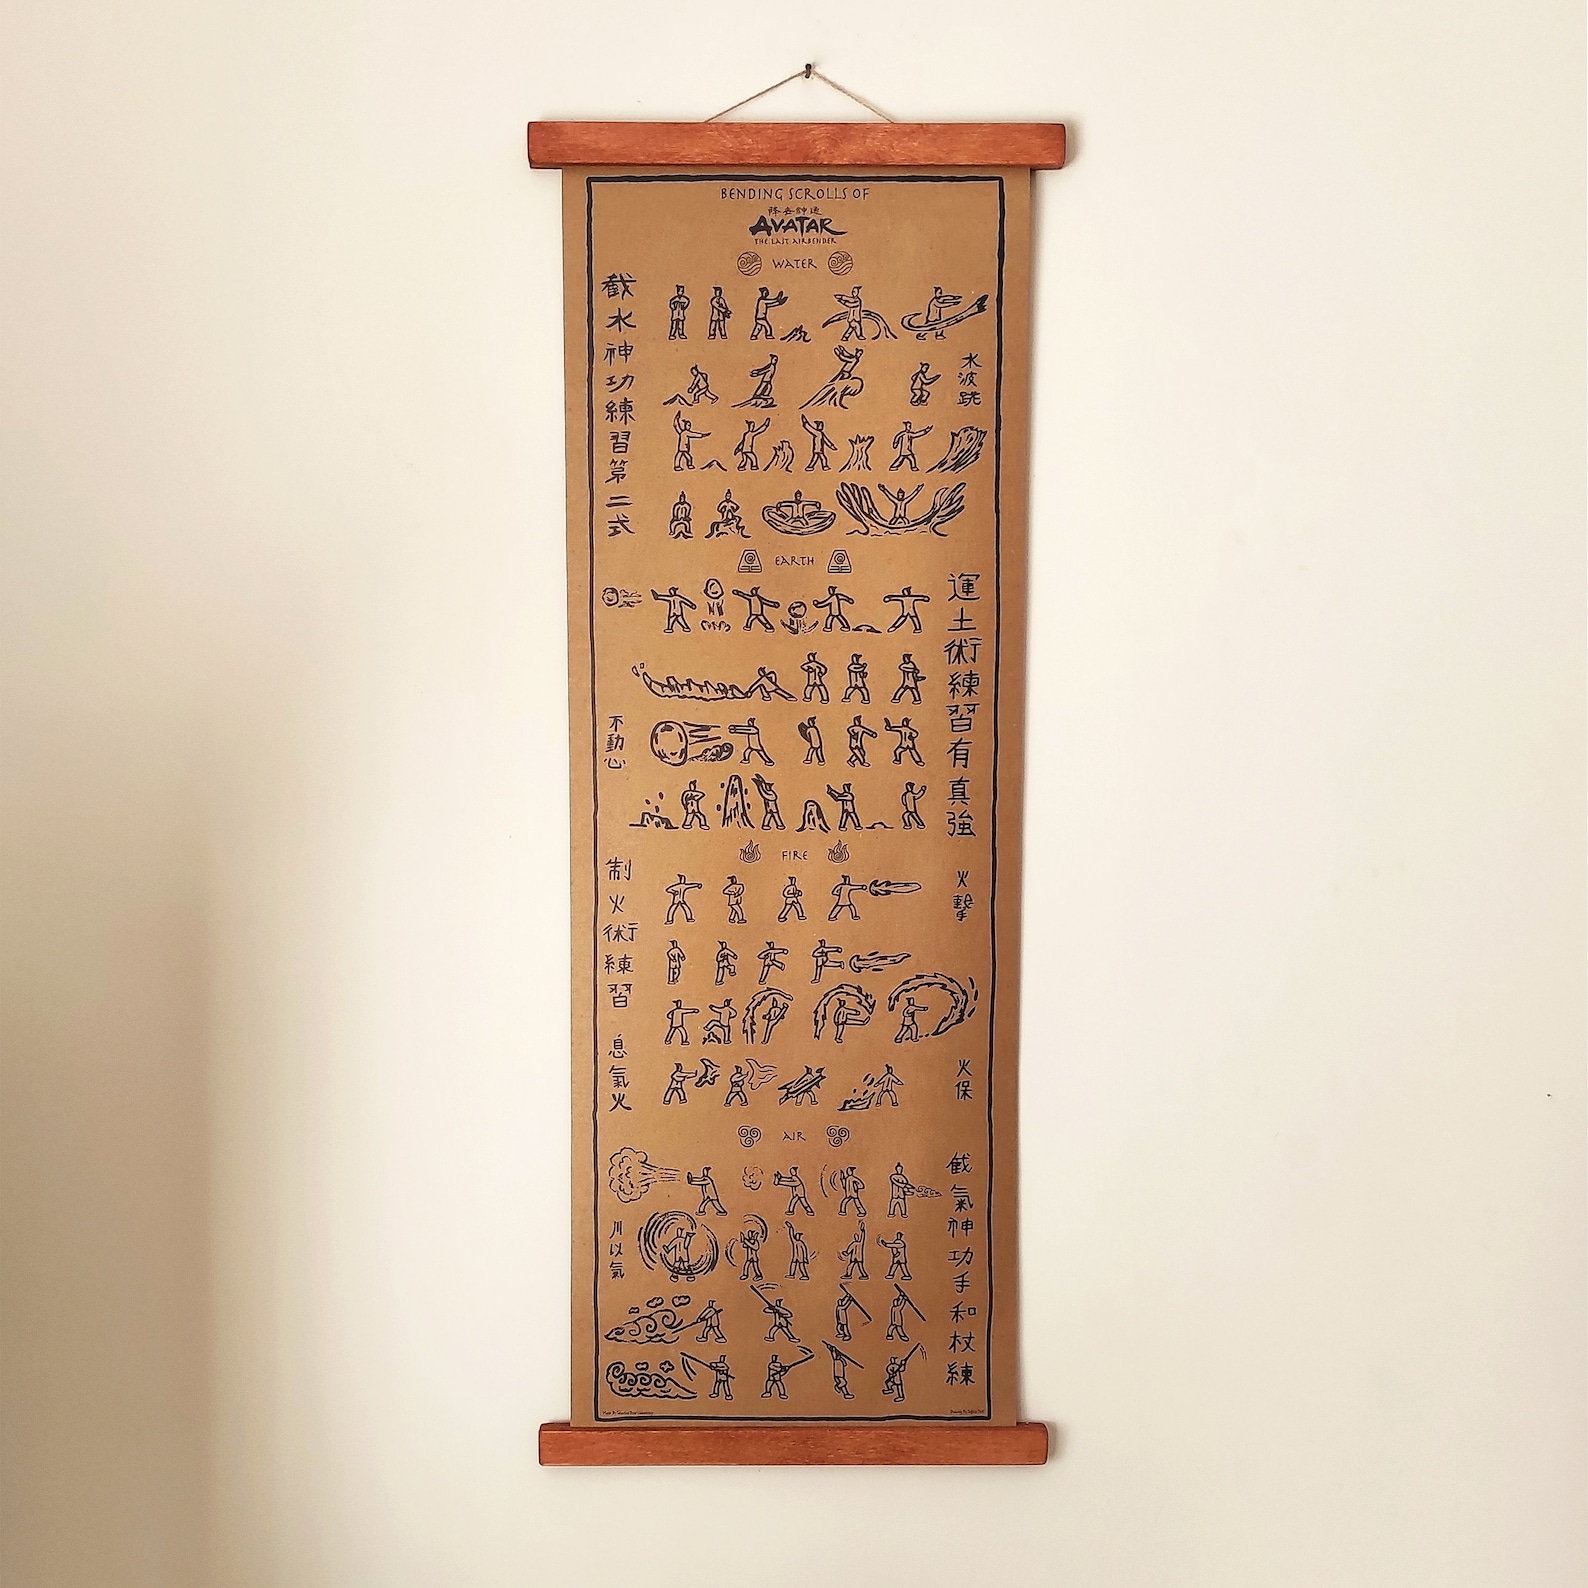 BENDING SCROLLS OF
降去神通
AVATAR
THE LAST AIRBENDER
WATER
截水神功練習第二式
水波跣
EARTH
運土術練習有真強
不動心
FIRE
制火術練習
息氣火
火擊
火保
AIR
截氣神功手和杖練
川以氣